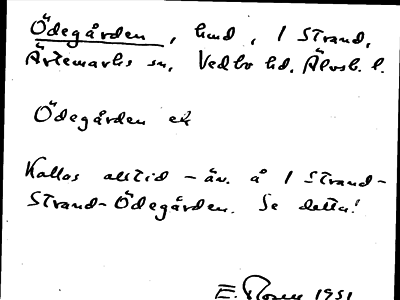 Ödegården, hmd, 1 Strand,
Ärtemarks sn, Vedbo hd, Älvsb. l.
Ödegården ek
Kallas alltid – äv. å 1 Strand –
Strand-Ödegården. Se detta!
E. Rosen 1951